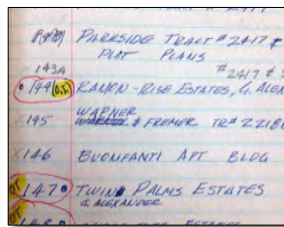 PARKSIDE TRACT # 2417 &
PLOT PLANS
143A #2417 &
144 O,T RAMON-RISE ESTATES, G. ALEX
X145 WARNER & FREMER TR# 2218
X146 BUONFANTI APT BLDG
OT 147 TWIN PALMS ESTATES
G. ALEXANDER
OT 148 ESTATES